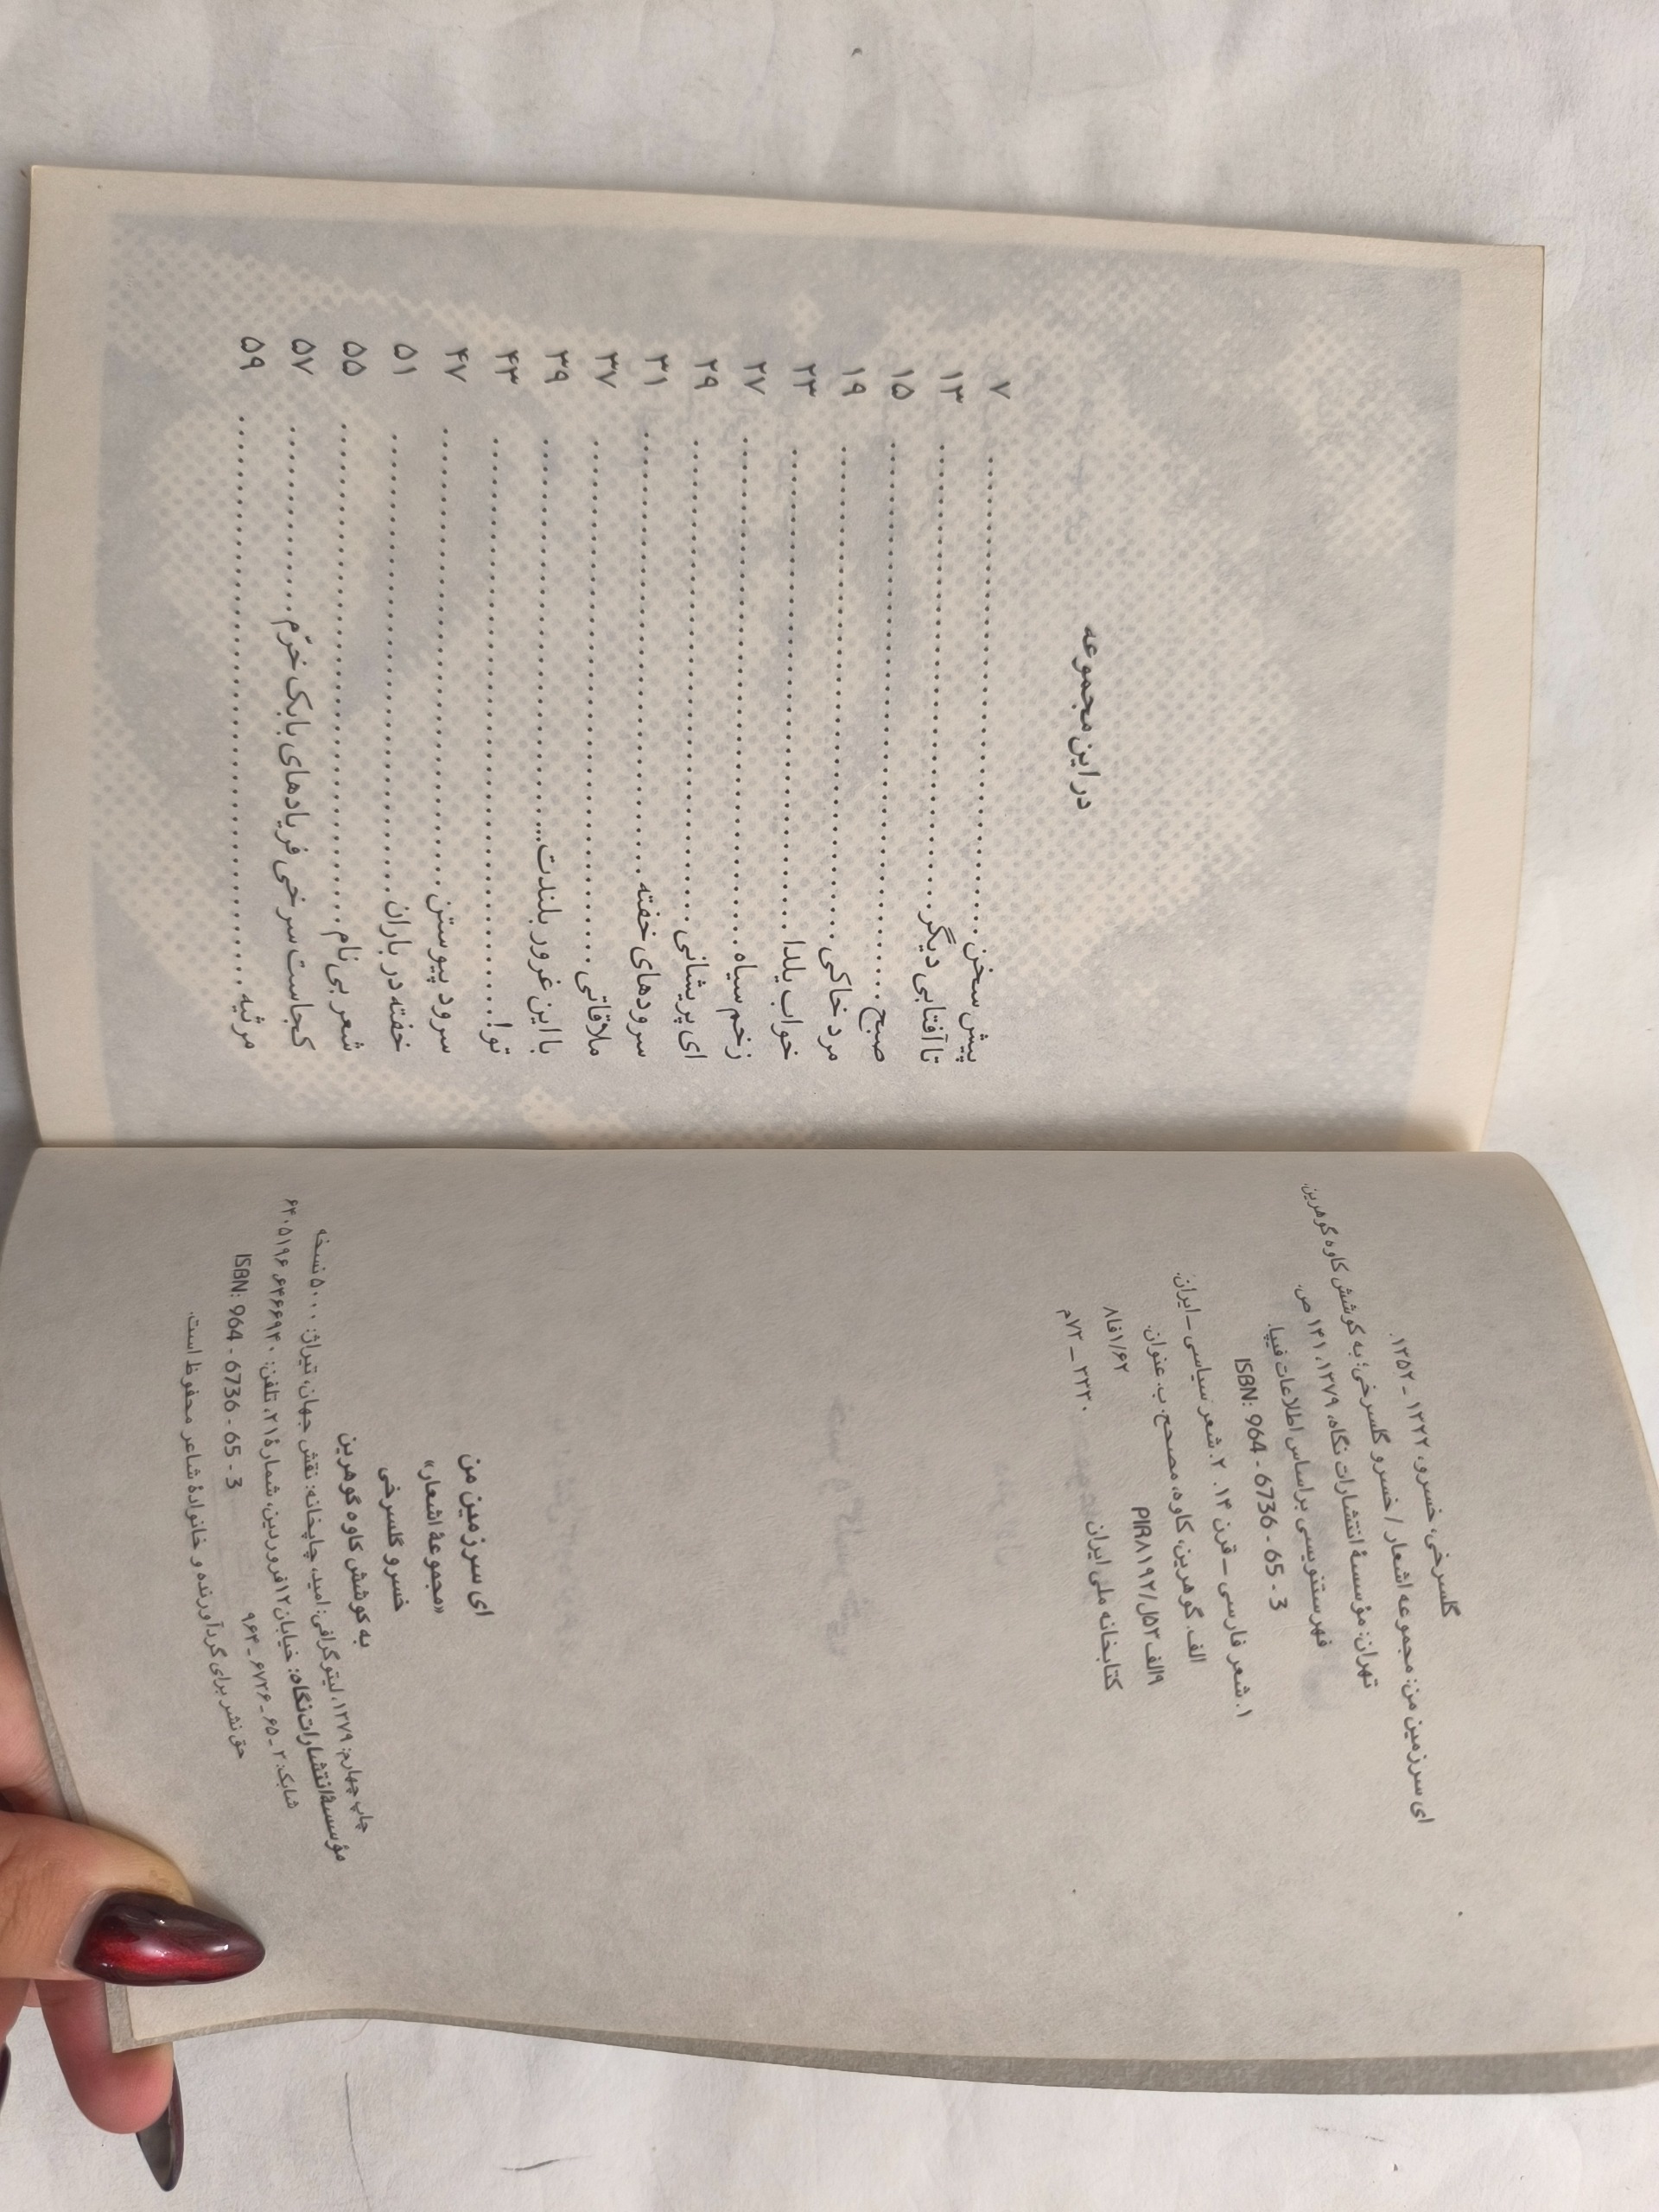 گلسرخی، خسرو، ۱۳۲۲ ـ ۱۳۵۲.
ای سرزمین من: مجموعه اشعار / خسرو گلسرخی؛ به کوشش کاوه گوهرین.
تهران: مؤسسهٔ انتشارات نگاه، ۱۳۷۹، ۱۴۱ ص.
فهرستنویسی براساس اطلاعات فیپا.
ISBN: 964 - 6736 - 65 - 3
۱. شعر فارسی ـ قرن ۱۴. ۲. شعر سیاسی ـ ایران.
الف. گوهرین، کاوه، مصحح. ب. عنوان.
۹الف۵۳ل/PIR۸۱۹۲ ۸فا۱/۶۲
کتابخانه ملی ایران ۲۳۲۰ ـ ۷۲م
ای سرزمین من
«مجموعهٔ اشعار»
خسرو گلسرخی
به کوشش کاوه گوهرین
چاپ چهارم: ۱۳۷۹، لیتوگرافی: امید، چاپخانه: نقش جهان، تیراژ: ۵۰۰۰ نسخه
مؤسسهٔ انتشارات نگاه: خیابان ۱۲ فروردین، شمارهٔ ۲۱، تلفن: ۶۴۶۶۹۴۰، ۶۴۰۵۱۹۶
شابک: ۳ ـ ۶۵ ـ ۶۷۳۶ ـ ۹۶۴ ISBN: 964 - 6736 - 65 - 3
حق نشر برای گردآورنده و خانوادهٔ شاعر محفوظ است.
در این مجموعه
پیش سخن ۷
تا آفتابی دیگر ۱۳
صبح ۱۵
مرد خاکی ۱۹
خواب یلدا ۲۳
زخم سیاه ۲۷
ای پریشانی ۲۹
سرودهای خفته ۳۱
ملاقاتی ۳۷
با این غرور بلندت... ۳۹
تو! ۴۳
سرود پیوستن ۴۷
خفته در باران ۵۱
شعر بی نام ۵۵
کجاست سرخی فریادهای بابک خرّم ۵۷
مرثیه ۵۹